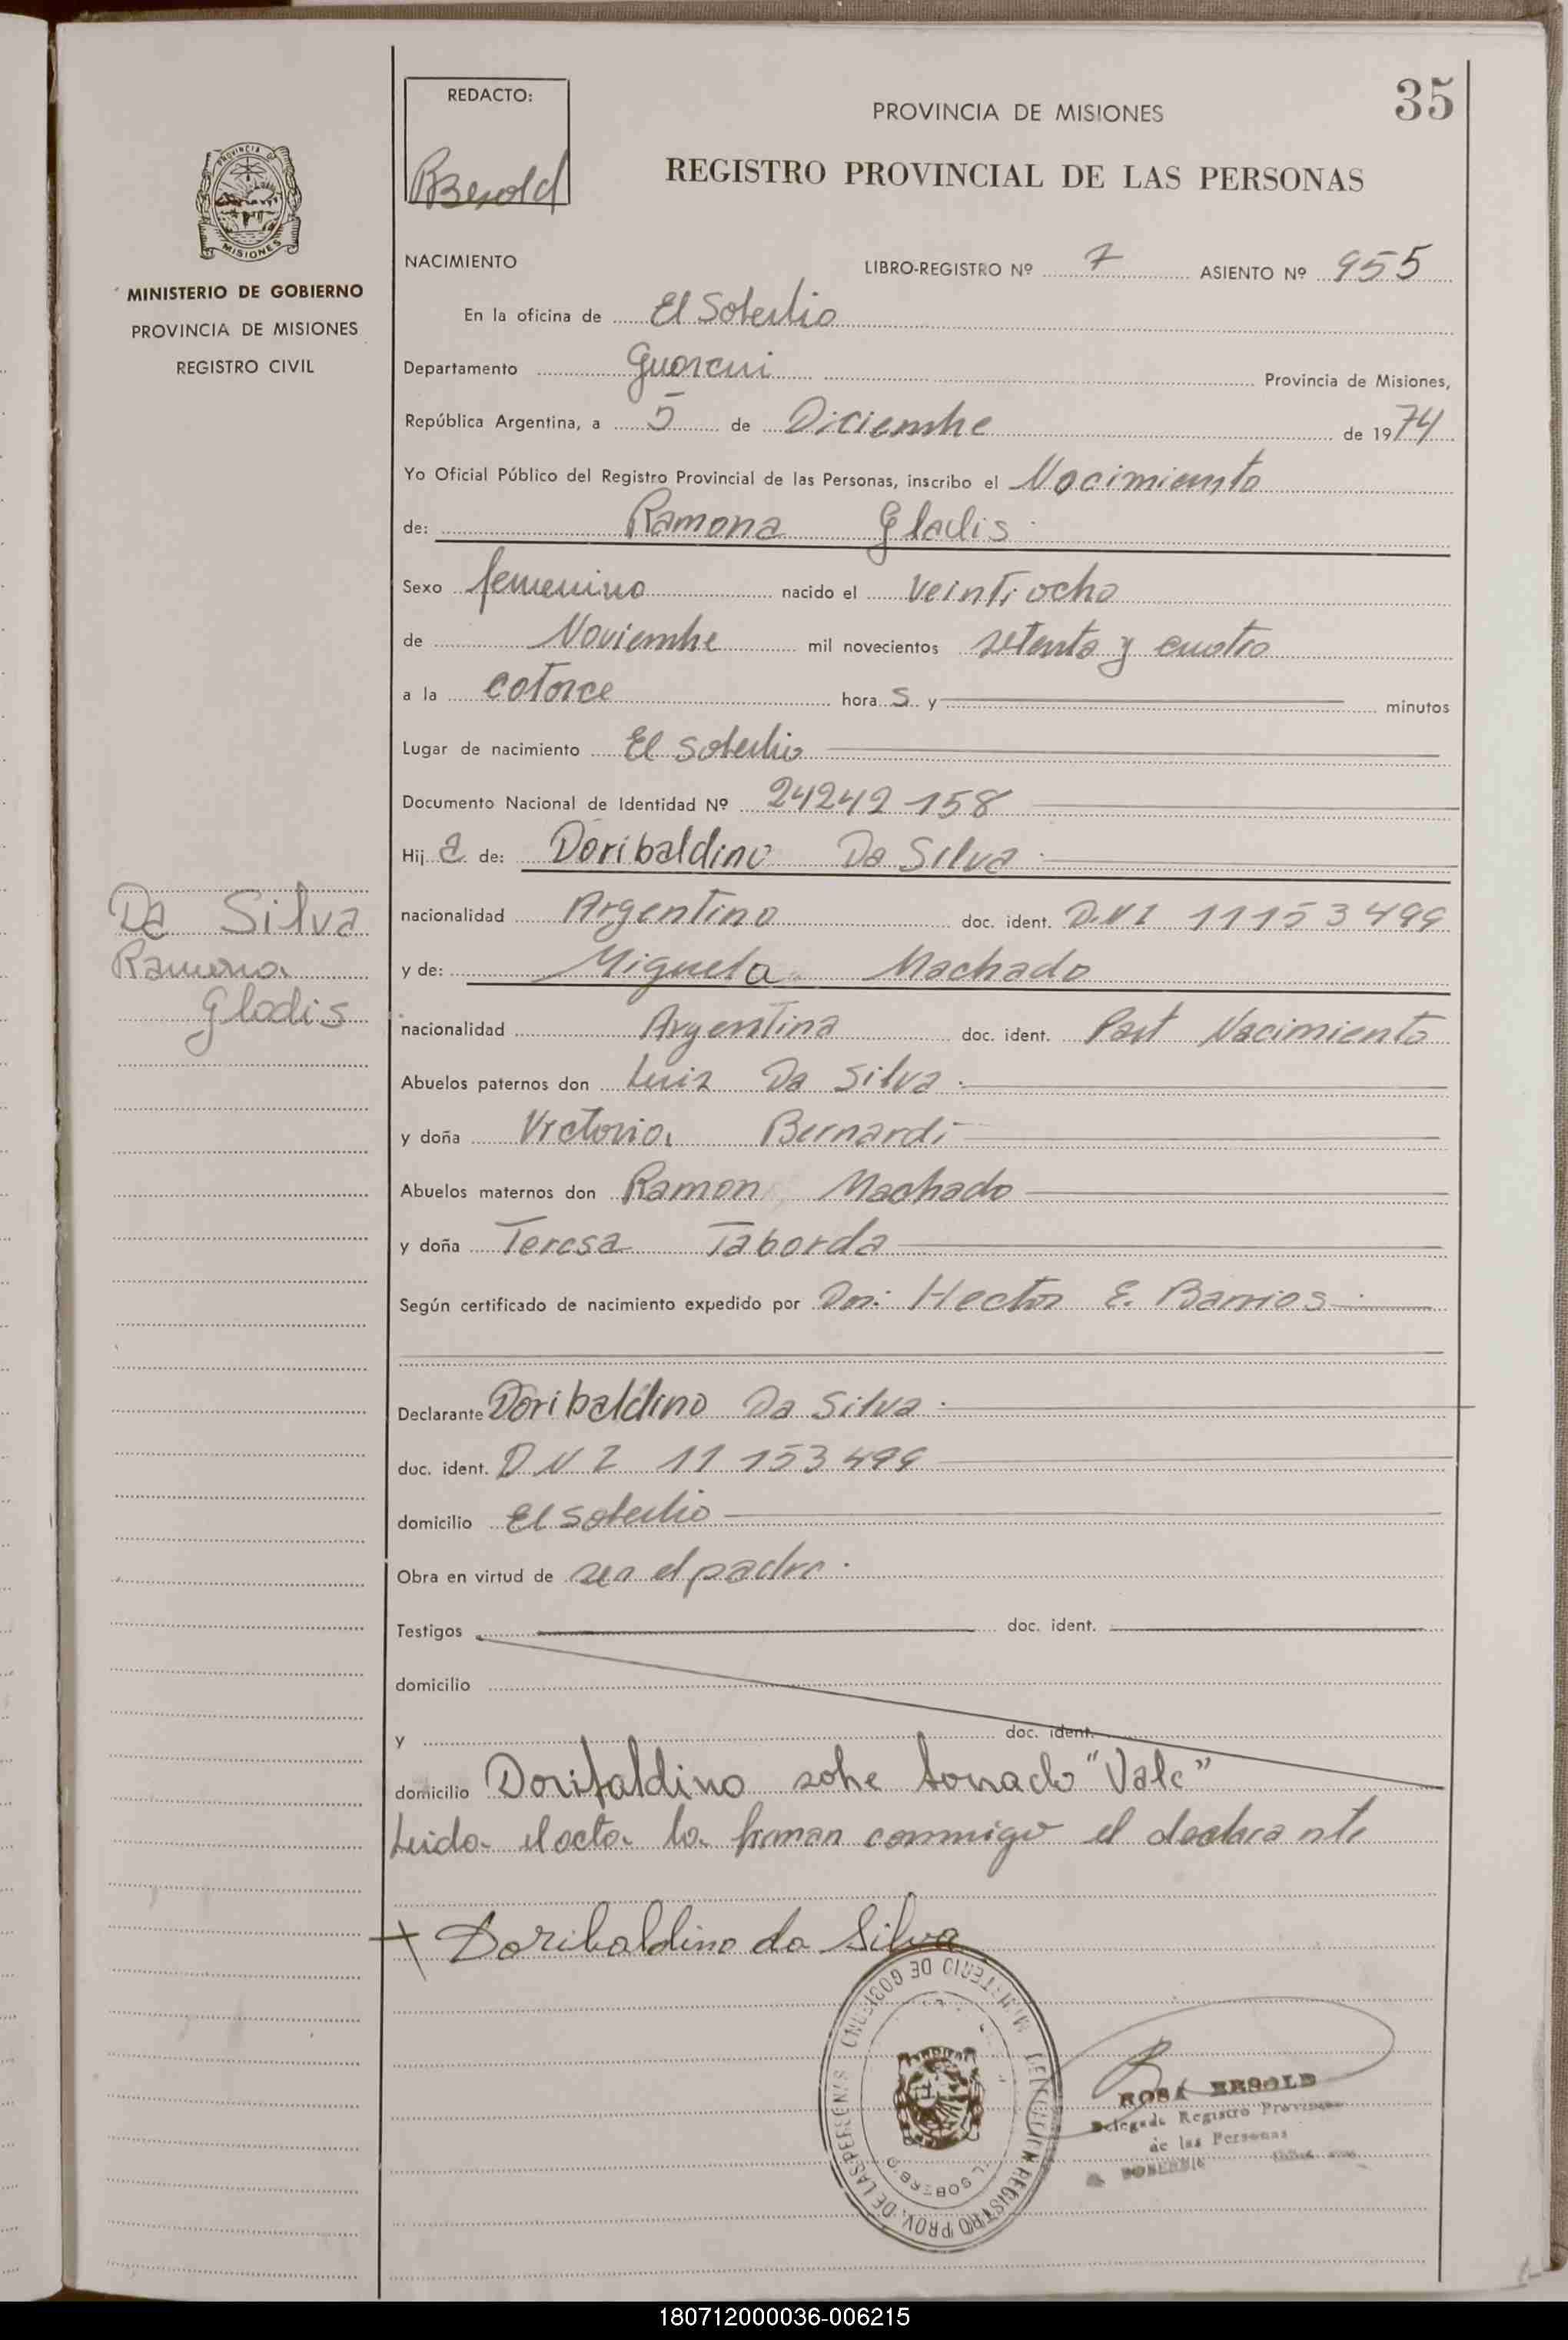 35
REDACTO:
PROVINCIA DE MISIONES
REGISTRO PROVINCIAL DE LAS PERSONAS
PROVINCIA DE
MISIONES
MINISTERIO DE GOBIERNO
PROVINCIA DE MISIONES
REGISTRO CIVIL
NACIMIENTO LIBRO-REGISTRO Nº 7 ASIENTO Nº 955
En la oficina de El Soberbio
Departamento Guarani Provincia de Misiones,
República Argentina, a 5 de Diciembre de 1974
Yo Oficial Público del Registro Provincial de las Personas, inscribo el Nacimiento
de: Ramona Gladis
Sexo femenino nacido el veintiocho
de Noviembre mil novecientos setenta y cuatro
a la catorce hora s y minutos
Lugar de nacimiento El Soberbio
Documento Nacional de Identidad Nº 24242158
Hij a de: Doribaldino Da Silva
Da Silva
Ramona
Gladis
nacionalidad Argentino doc. ident. D.N I 11153499
y de: Miguela Machado
nacionalidad Argentina doc. ident. Part Nacimiento
Abuelos paternos don Luiz Da Silva
y doña Victoria Bernardi
Abuelos maternos don Ramon Machado
y doña Teresa Taborda
Según certificado de nacimiento expedido por Hector E. Barrios
Declarante Doribaldino Da Silva
doc. ident. D N I 11 153499
domicilio El Soberbio
Obra en virtud de ser el padre.
Testigos doc. ident.
domicilio
y doc. ident.
domicilio Doribaldino sobre borrado "Vale"
Leida el acta la firman conmigo el declarante
Doribaldino da Silva
MINISTERIO DE GOBIERNO
REGISTRO PROV. DE LAS PERSONAS
ROSA BESOLD
Delegada Registro Provincial
de las Personas
180712000036-006215